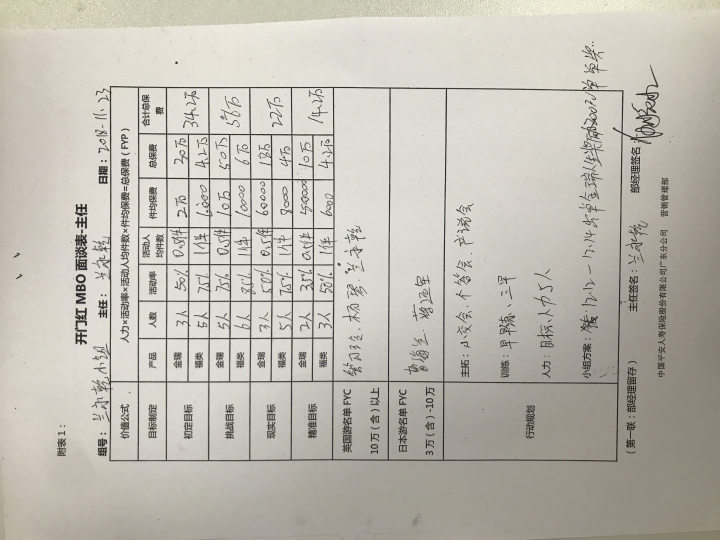 附表1:
开门红 MBO 面谈表-主任
组号: 兰永乾小组 主任: 兰永乾 日期: 2018-11.23
价值公式 人力×活动率×活动人均件数×件均保费=总保费(FYP)
目标制定 产品 人数 活动率 活动人均件数 件均保费 总保费 合计总保费
初定目标 金瑞 3人 50% 2万 20万 34.2万
福类 5人 75% 1件 4.2万
挑战目标 金瑞 5人 75% 0.5件 10万 50万 56万
福类 6人 85% 1件 10000 6万
现实目标 金瑞 3人 50% 0.5件 60000 18万 22万
福类 5人 75% 1件 8000 4万
精准目标 金瑞 2人 35% 0.5件 50000 10万 14.2万
福类 3人 50% 1件 6000 4.2万
英国游名单 FYC
10万(含)以上
杨琴 兰永乾
日本游名单 FYC
3万(含)-10万
行动规划
主拓: 小交会、个答会、产说会
训练: 早早练、三早
人力: 目标人力5人
小组方案:
(第一联:部经理留存) 主任签名: 兰永乾 部经理签名:
中国平安人寿保险股份有限公司广东分公司 营销管理部